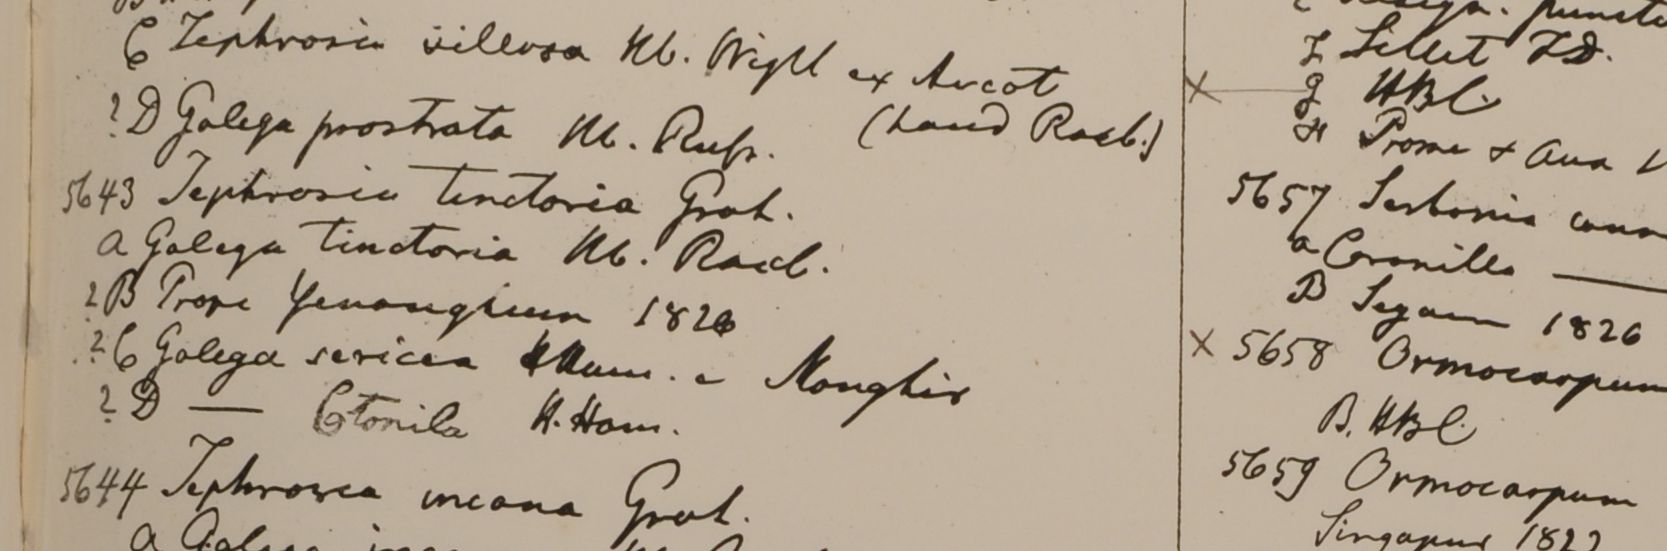 C Tephrosia villosa Hb. Wight ex Arcot
(haud Roxb.)
?D Galega prostrata Hb. Russ.
5643 Tephrosia tinctoria Grah.
a Galega tinctoria Hb. Roxb.
?B Prope Yenanghuen 1826
?C Galega sericea HHam. e Monghir
?D — Ctonila H.Ham.
5644 Tephrosia incana Grah.
a Galega
F Sillet FD.
X g HBC
H Prome & Ava
5657 Sesbania
a Coronilla —
B Segaen 1826
X 5658 Ormocarpum
B. HBC
5659 Ormocarpum
Singapur 1822